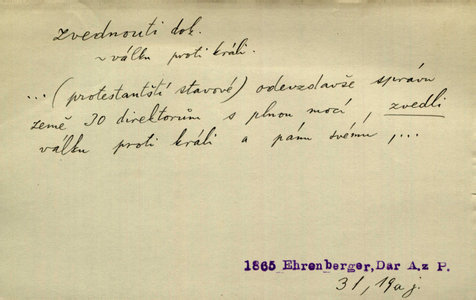 zvednouti dok.
~ válku proti králi.
...(protestantští stavové) odevzdavše správu
země 30 direktorům s plnou mocí, zvedli
válku proti králi a pánu svému,...
1865 Ehrenberger, Dar A.z P.
31, 19a j.